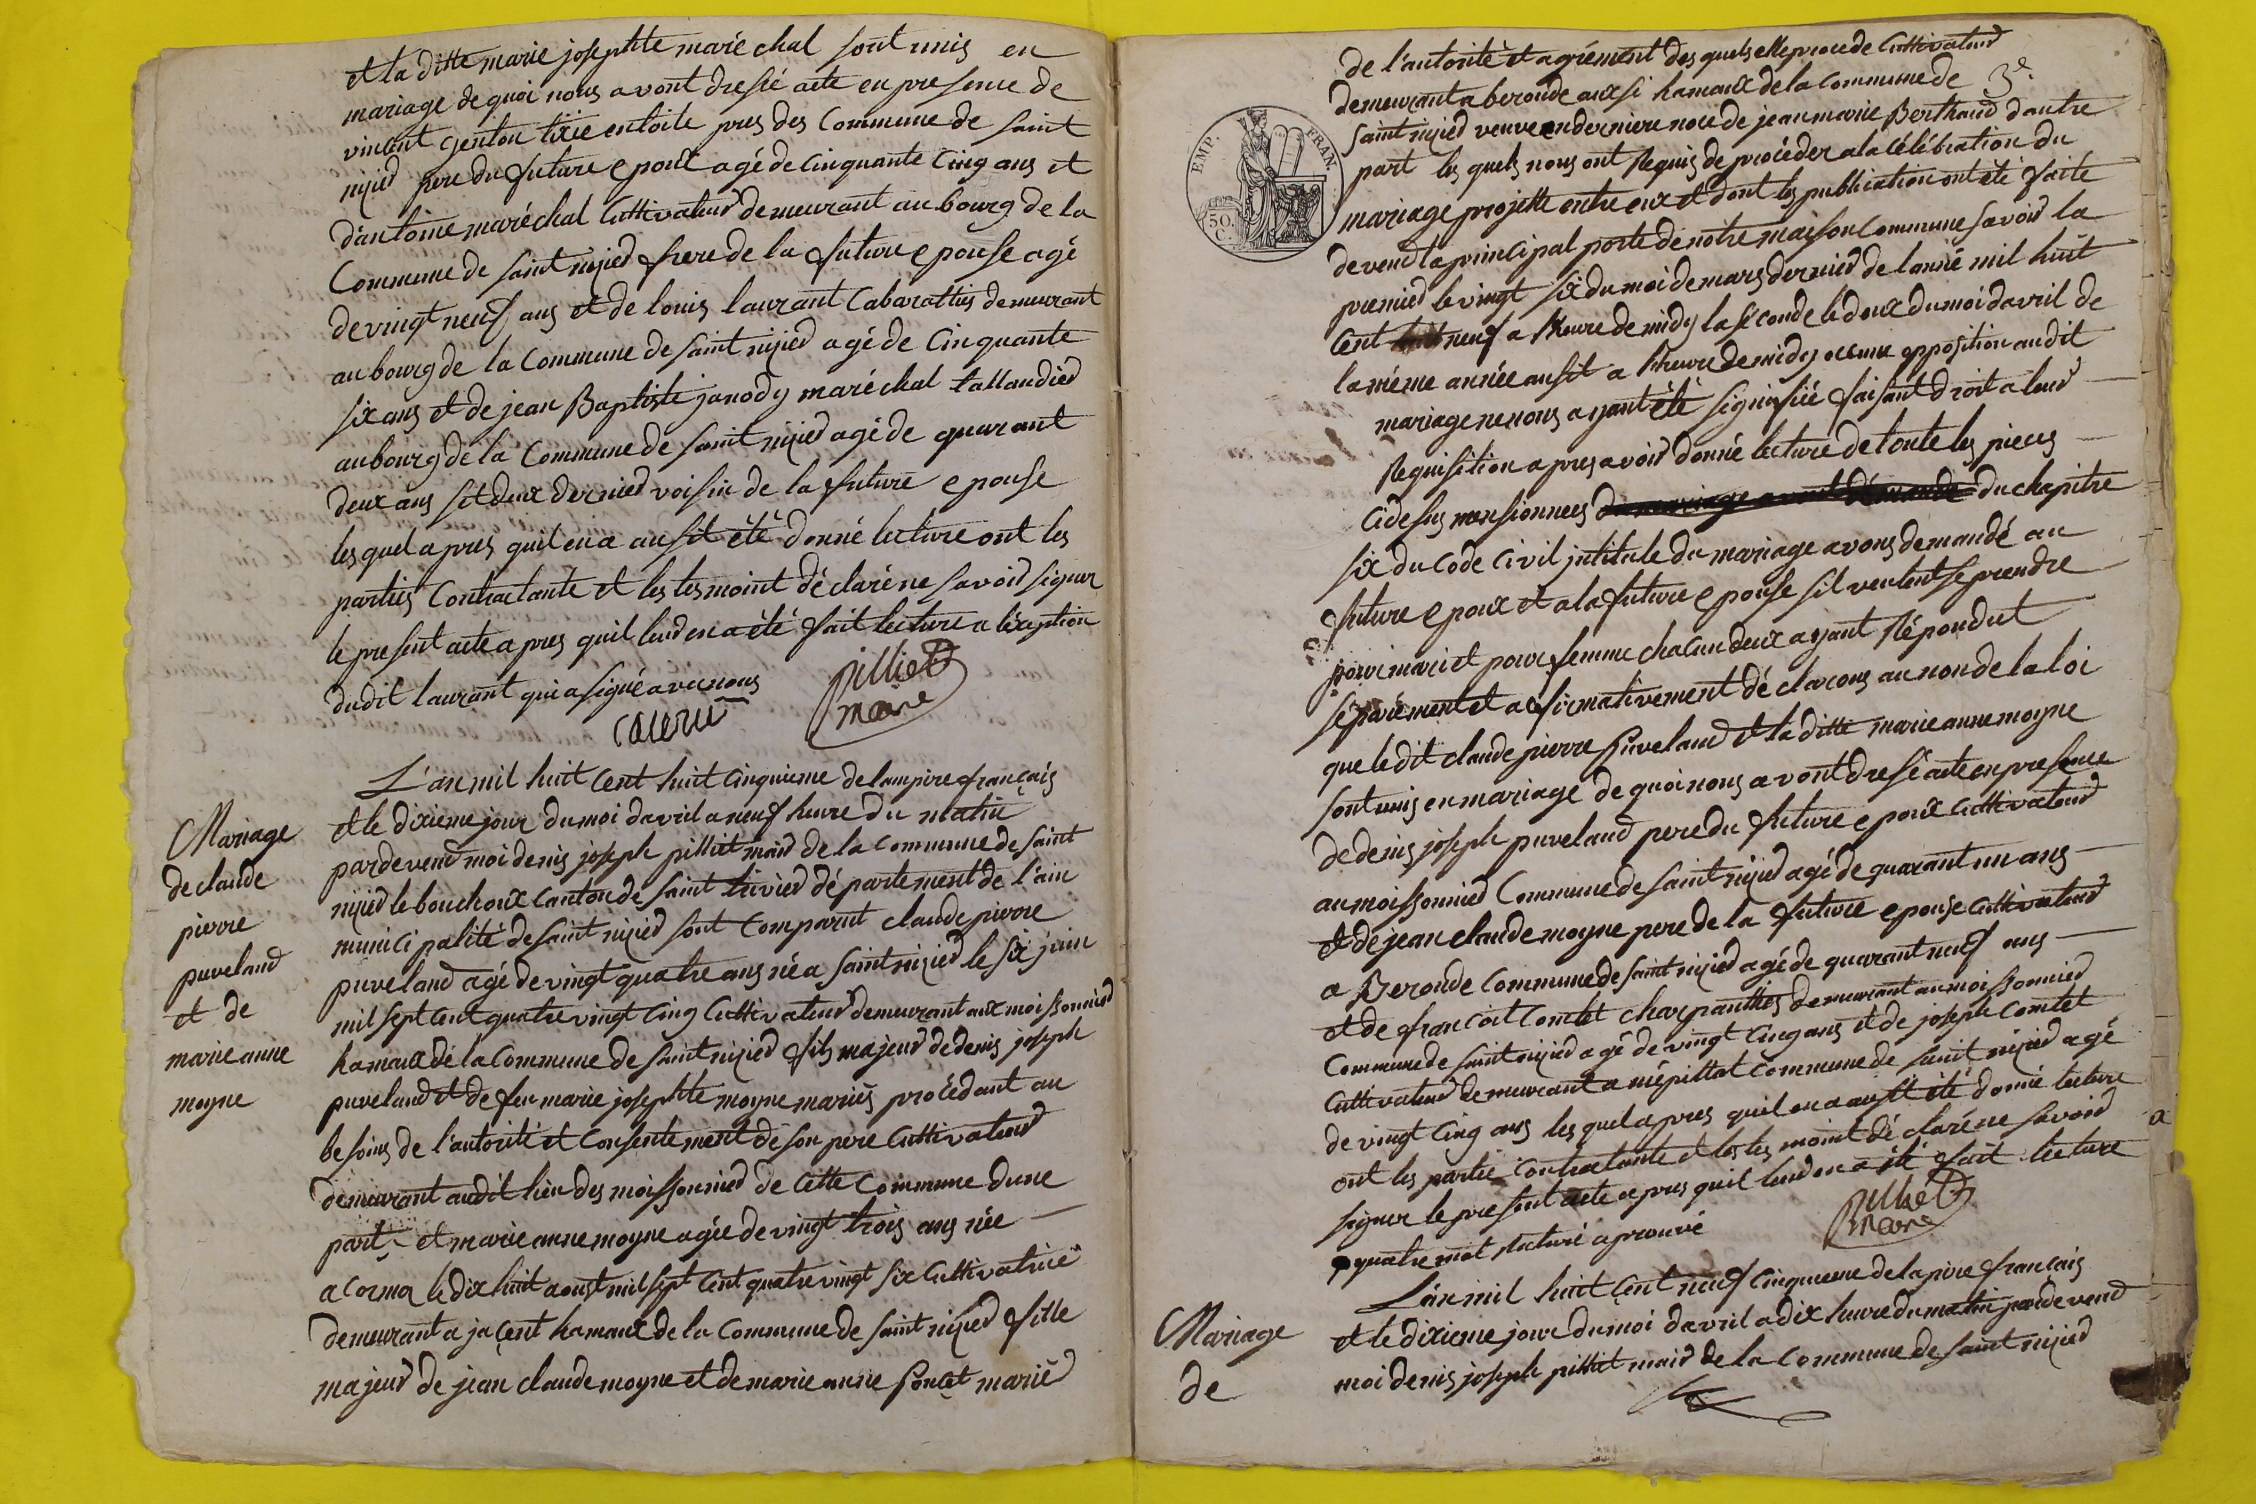 et la ditte marie josephte maréchal sont unis en
mariage de quoi nous avont dressé acte en presence de
vincent genton tixie en toile pres des Commune de saint
nizied pere du future epoux agé de Cinquante Cinq ans et
d'antoine maréchal Cultivateur demeurant au bourg de la
Commune de saint nizied frere de la future epouse agé
de vingt neuf ans et de louis laurant Cabaratties demeurant
au bourg de la Commune de saint nizied agé de Cinquante
six ans et de jean Baptiste janody maréchal tallandied
au bourg de la Commune de saint nizied agé de quarant
deux ans sit deux dernied voisin de la future epouse
les quel apres quil en a ausit été donné lecture ont les
parties Contractante et les tesmoint déclaré ne savoid signer
le present acte apres quil leud en a été fait lecture a lexaption
dudit laurant qui a signé avec nous
pilliet
maire
L'an mil huit Cent huit Cinquieme de lampire français
et le dixieme jour du moi davril a neuf heure du matin
pardevend moi denis joseph pilliet maid de la Commune de saint
nizied le bouchoux Canton de saint trivied département de l'ain
municipalité de saint nizied sont Comparut claude pierre
puveland agé de vingt quatre ans né a saint nizied le six juin
mil sept Cent quatre vingt Cinq Cultivateur demeurant aux moissonnied
hamaux de la Commune de saint nizied fils majeur de denis joseph
puveland et de feu marie josephte moyne mariés procédant au
besoins de l'autorité et Consentement de son pere Cultivateud
demeurant audit lieu des moissonnied de Cette Commune dune
part et marie anne moyne agée de vingt trois ans née
a Cormoz le dix huit aoust mil sept Cent quatre vingt six Cultivatrice
demeurant a jaçent hamaux de la Commune de saint nizied fille
majeur de jean claude moyne et de marie anne ponçet mariéd
Mariage
de claude
pierre
puveland
et de
marie anne
moyne
de l'autorité et agrément des quels elle procede Cultivateud
demeurant a beronde aussi hamaux de la Commune de 3e.
saint nizied veuve en derniere noce de jean marie Berthaud d'autre
part les quels nous ont Requis de procéder a la célébration du
mariage projetté entre eux et dont les publication ont été faite
devend la principal porte de notre maison Commune savoid la
premied le vingt six du moi de mars dernied de lanné mil huit
Cent neuf a lheure de midy la seconde le deux du moi davril de
la méme année ausit a lheure de midy occune opposition audit
mariage ne nous ayant été signifiée faisant droit a leud
Requisition apres avoid donné lecture de toute les pieces
Cidesus mensionnees du chapitre
six du Code Civil intitule du mariage avons demandé au
future epoux et a la future epouse sil veulent se prendre
pour mari et pour femme chacun deux ayant Répondut
séparément et afirmativement déclarons au non de la loi
que le dit claude pierre Puveland et la ditte marie anne moyne
sont unis en mariage de quoi nous avont dressé acte en presence
de denis joseph puveland pere du future epoux Cultivateud
au moissonnied Commune de saint nizied agé de quarant un ans
et de jean claude moyne pere de la future epouse Cultivateud
a Beronde Commune de saint nizied agé de quarant neuf ans
et de francoit Comtet charpanties demeurant au moissonnied
Commune de saint nizied agé de vingt Cinq ans et de joseph Comtet
Cultivateud demeurant a mépittat Commune de saint nizied agé
de vingt Cinq ans les quel apres quil en a ausit été donné lecture
ont les partie Contractante et les tesmoint déclaré ne savoid
signer le present acte apres quil leud en a été fait lecture
quatre mot raturé aprouvé
pilliet
maire
L'an mil huit Cent neuf Cinquieme de lapire français
et le dixieme jour du moi davril a dix heure du matin pardevend
moi denis joseph pilliet maid de la Commune de saint nizied
Mariage
de
EMP. FRAN.
50
C.